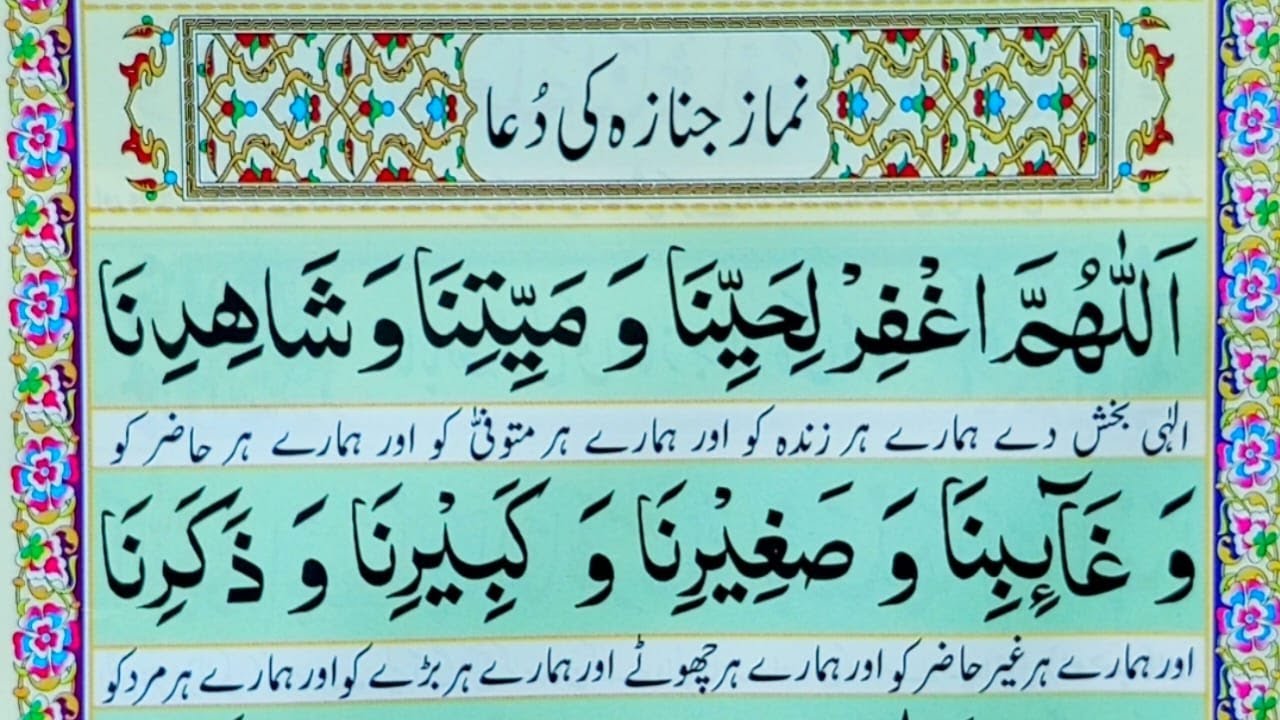 نماز جنازہ کی دُعا
اَللّٰهُمَّ اغْفِرْ لِحَيِّنَا وَ مَيِّتِنَا وَ شَاهِدِنَا
الٰہی بخش دے ہمارے ہر زندہ کو اور ہمارے ہر متوفیّٰ کو اور ہمارے ہر حاضر کو
وَ غَآئِبِنَا وَ صَغِيْرِنَا وَ كَبِيْرِنَا وَ ذَكَرِنَا
اور ہمارے ہر غیر حاضر کو اور ہمارے ہر چھوٹے اور ہمارے ہر بڑے کو اور ہمارے ہر مرد کو